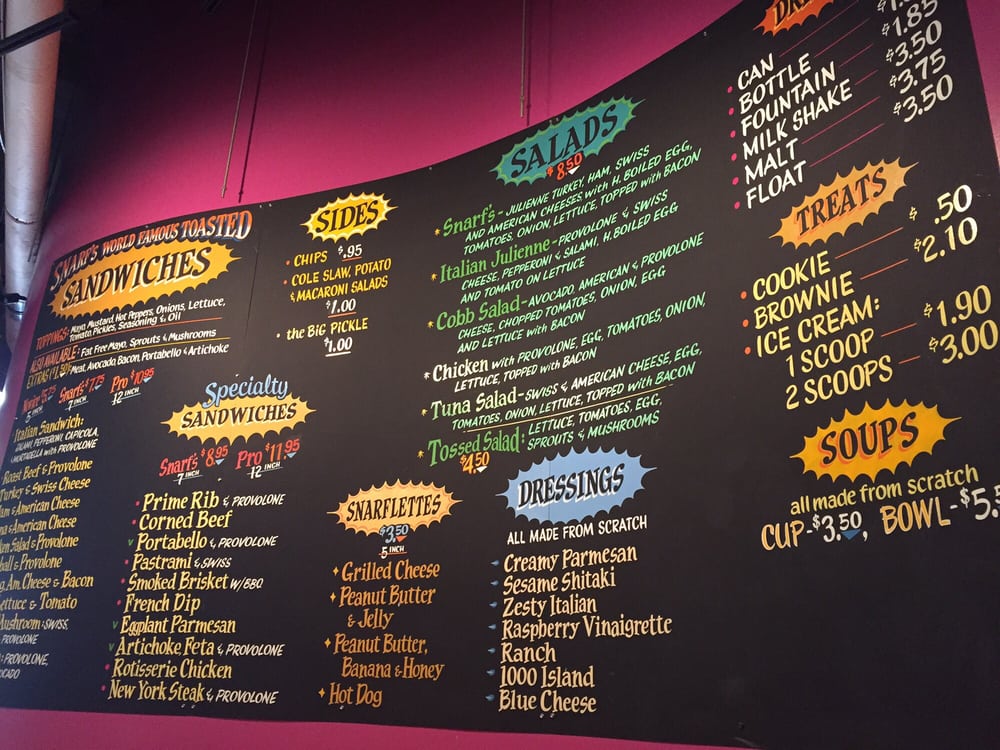 SNARF'S WORLD FAMOUS TOASTED
SANDWICHES
TOPPINGS: Mayo, Mustard, Hot Peppers, Onions, Lettuce,
Tomato, Pickles, Seasoning & Oil
ALSO AVAILABLE: Fat Free Mayo, Sprouts & Mushrooms
EXTRAS Meat, Avocado, Bacon, Portabello & Artichoke
Snarf's $7.75 Pro $10.95
5 INCH 7 INCH 12 INCH
Italian Sandwich:
SALAMI, PEPPERONI, CAPICOLA,
MORTADELLA with PROVOLONE
Roast Beef & Provolone
Turkey & Swiss Cheese
& American Cheese
& American Cheese
Salad & Provolone
& Provolone
Am. Cheese & Bacon
Lettuce & Tomato
Mushroom: SWISS,
PROVOLONE
PROVOLONE,
SIDES
• CHIPS $.95
• COLE SLAW, POTATO
& MACARONI SALADS
$1.00
• the BIG PICKLE
$1.00
Specialty
SANDWICHES
Snarf's $8.95 Pro $11.95
7 INCH 12 INCH
Prime Rib & PROVOLONE
Corned Beef
Portabello & PROVOLONE
Pastrami & SWISS
Smoked Brisket W/BBQ
French Dip
Eggplant Parmesan
Artichoke Feta & PROVOLONE
Rotisserie Chicken
New York Steak & PROVOLONE
SALADS
$8.50
* Snarf's - JULIENNE TURKEY, HAM, SWISS
AND AMERICAN CHEESES with H. BOILED EGG,
TOMATOES, ONION, LETTUCE, TOPPED with BACON
* Italian Julienne - PROVOLONE & SWISS
CHEESE, PEPPERONI & SALAMI, H. BOILED EGG
AND TOMATO ON LETTUCE
* Cobb Salad - AVOCADO, AMERICAN & PROVOLONE
CHEESE, CHOPPED TOMATOES, ONION, EGG
AND LETTUCE with BACON
* Chicken with PROVOLONE, EGG, TOMATOES, ONION,
LETTUCE, TOPPED with BACON
* Tuna Salad - SWISS & AMERICAN CHEESE, EGG,
TOMATOES, ONION, LETTUCE, TOPPED with BACON
* Tossed Salad: LETTUCE, TOMATOES, EGG,
$4.50 SPROUTS & MUSHROOMS
SNARFLETTES
$3.50
5 INCH
Grilled Cheese
Peanut Butter
& Jelly
Peanut Butter,
Banana & Honey
Hot Dog
DRESSINGS
ALL MADE FROM SCRATCH
Creamy Parmesan
Sesame Shitaki
Zesty Italian
Raspberry Vinaigrette
Ranch
1000 Island
Blue Cheese
• CAN
• BOTTLE $1.85
• FOUNTAIN
• MILK SHAKE $3.50
• MALT $3.75
• FLOAT $3.50
TREATS
• COOKIE $.50
• BROWNIE $2.10
• ICE CREAM:
1 SCOOP $1.90
2 SCOOPS $3.00
SOUPS
all made from scratch
CUP - $3.50, BOWL - $5.